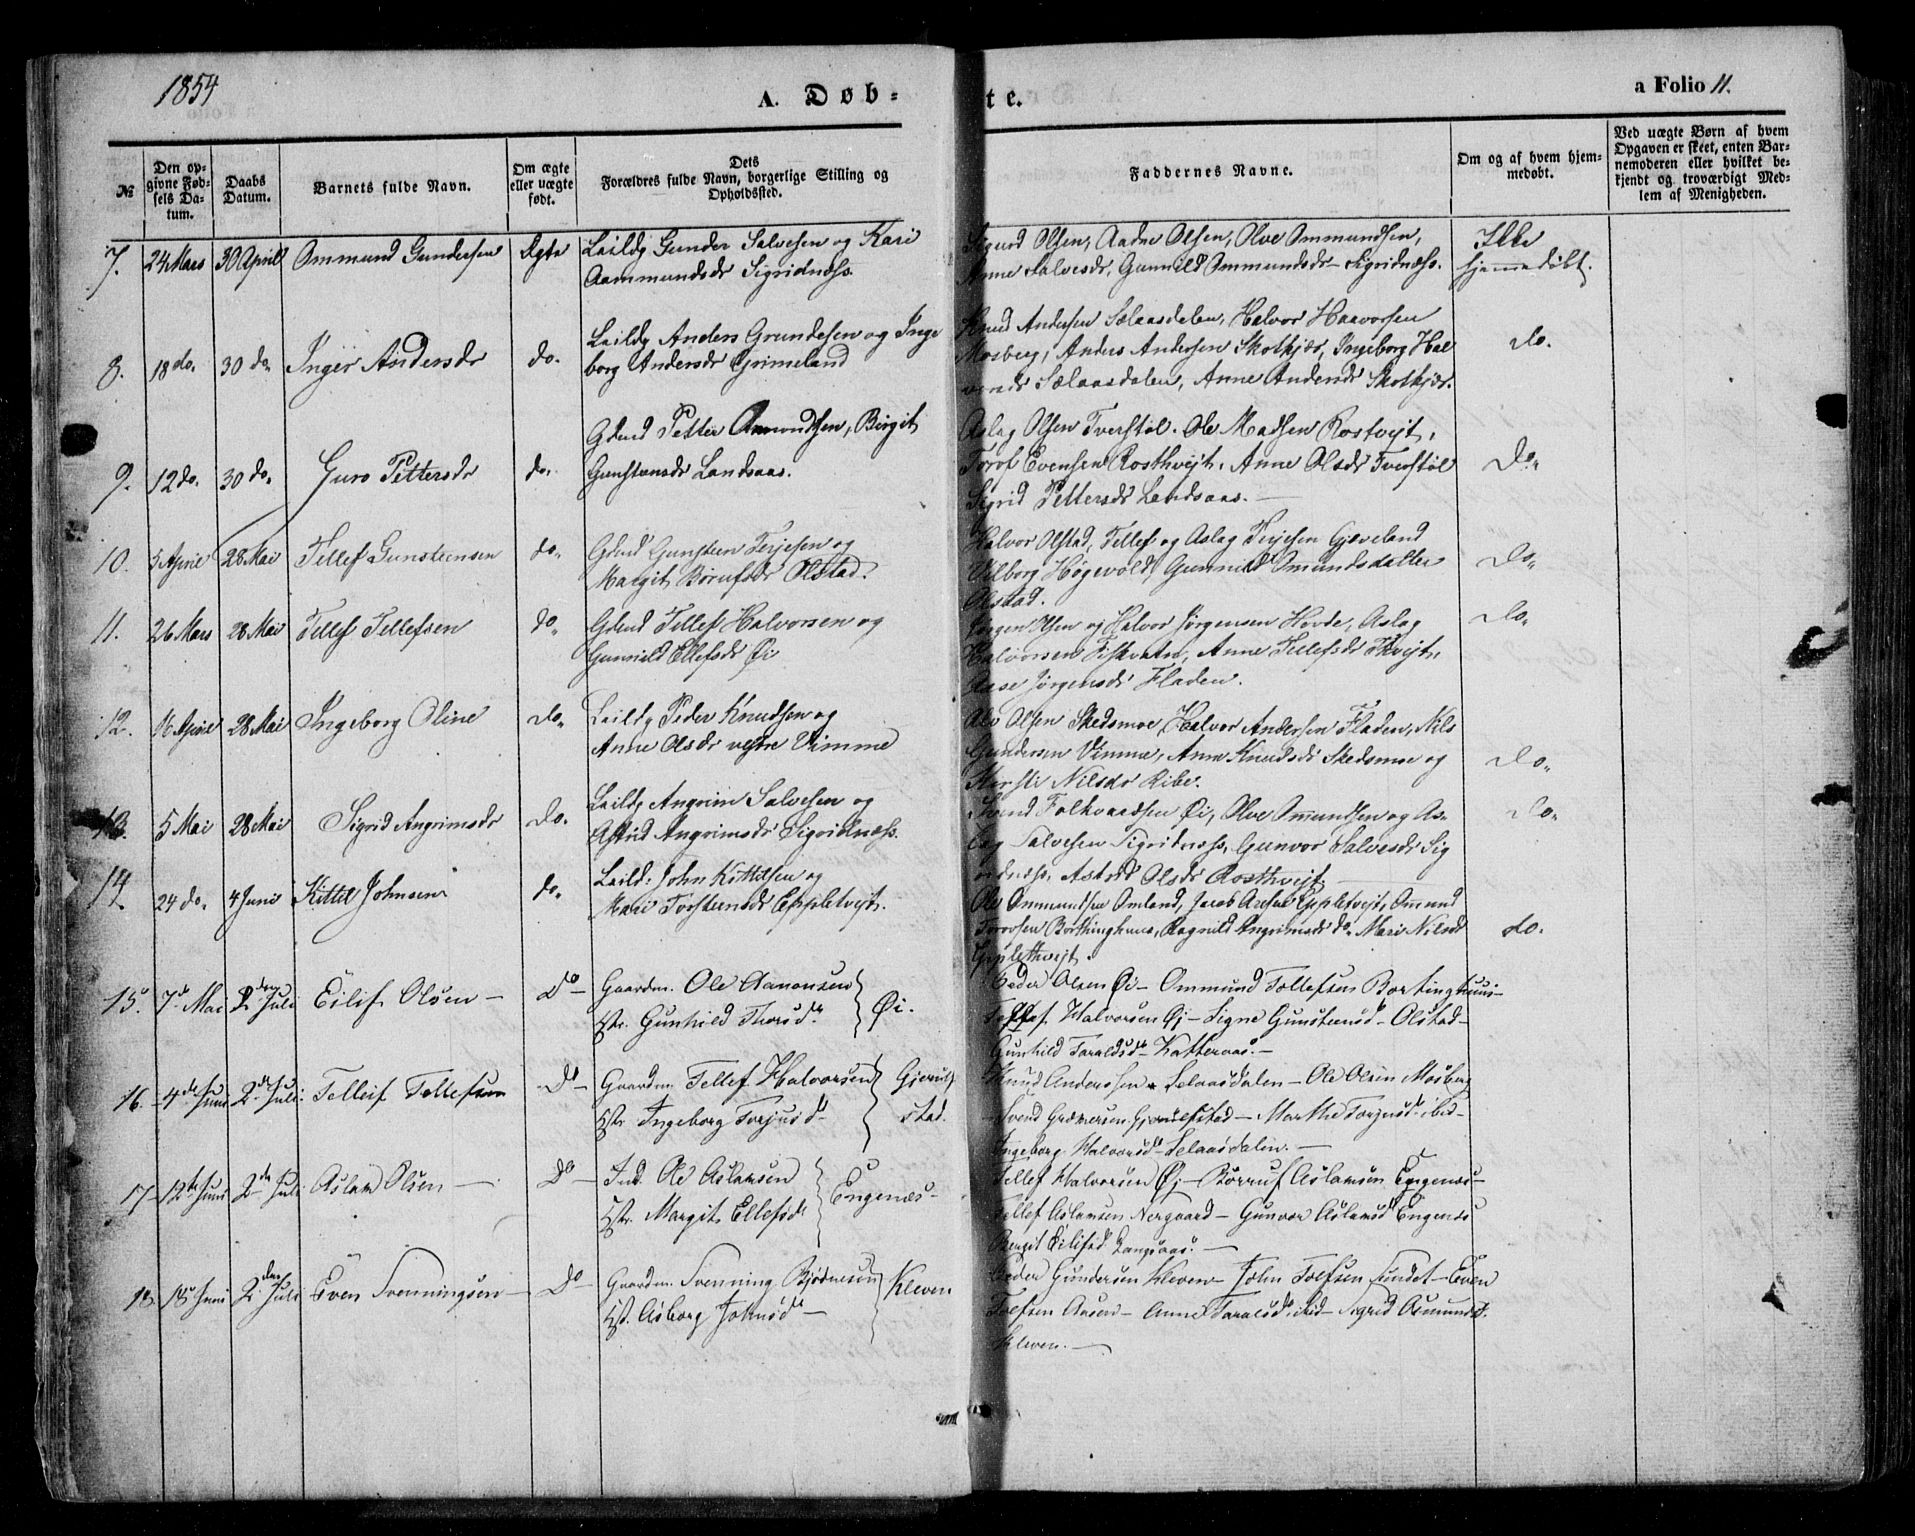 1854
A. Døb-
te.
a Folio 11.
№
Den op-
givne Fød-
sels Da-
tum.
Daabs
Datum.
Barnets fulde Navn.
Om ægte
eller uægte
født.
Dets
Forældres fulde Navn, borgerlige Stilling og
Opholdssted.
Faddernes Navne.
Om og af hvem hjem-
medøbt.
Ved uægte Børn af hvem
Opgaven er skeet, enten Bar-
nemoderen eller hvilket be-
kjendt og troværdigt Med-
lem af Menigheden.
7. 24 Mars 30 April Ommund Gundersen Ægte Leildg Gunder Salvesen og Kari
Aammundsdr Sigridnæss.
Sigurd Olsen, Aadne Olsen, Olve Ommundsen,
Anne Salvesdr, Gunnild Ommundsdr - Sigridnæss.
Ikke
hjemmedøbt.
8. 18 do. 30 do. Inger Andersdr do. Leildg Anders Grundesen og Inge
borg Andersdr Grimeland
Knud Andersen Selaasdalen, Halvor Haavorsen
Mosberg, Anders Andersen Skotkjær, Ingeborg Hal
vorsdr Sælaasdalen, Anne Andersdr Skotkjær.
do.
9. 12 do. 30 do. Guro Pettersdr do. Gdmd Petter Omundsen, Birgit
Gunsteensdr Landsaas.
Aslag Olsen Tverstøl. Ole Madsen Rostveit,
Torof Evensen Rosthvejt, Anne Olsdr Tverstøl
Sigrid Pettersdr Landsaas. —
Do.
10. 5 April 28 Mai Tellef Gunsteensen do. Gdmd Gunsteen Terjesen og
Margit Børufsdr Olstad.
Halvor Olstad, Tellef og Aslag Terjesen Gjeveland
Vilborg Høgevold, Gunnild Omundsdatter
Olstad.
Do.
11. 26 Mars 28 Mai Tellef Tellefsen do. Gdmd Tellef Halvorsen og
Gunnild Ellefsdr Øi
Jørgen Olsen og Halvor Jørgensen Hovde, Aslag
Halvorsen Fiskvatn, Anne Tellefsdr Thvejt,
Aase Jørgensdr Fladen.
Do.
12. 16 April 28 Mai Ingeborg Oline do. Leildg Peder Knudsen og
Anne Olsdr vestre Vimme
Alv Olsen Skedsmoe, Halvor Andersen Fladen, Nils
Gundersen Vimme, Anne Knudsdr Skedsmoe og
Kirsti Nilsdr Ribe.
Do.
13. 5 Mai 28 Mai Sigrid Angrimsdr do. Leildg Angrim Salvesen og
Astrid Angrimsdr Sigridnæss.
Svend Folkvardsen Øi, Olve Ommundsen og As-
lag Salvesen Sigridnæss, Gunvor Salvesdr Sig
ridnæss, Astrid Olsdr Rosthvejt
Do.
14. 24 do. 4 Juni Kittel Johnsen do. Leild: John Kittelsen og
Mari Torsteensdr Eppletveit.
Ole Ommundsen Omland, Jacob Eppletveit, Ommund
Torovsen Borthinghuus, Ragnild Angrimsdr do. Mari Nilsdr
Epplethveit.
do.
15. 7de Mai 2den Juli Eilif Olsen — Do — Gaardm. Ole Aanonsen
Hstr. Gunhild Thorsdr } Øi.
Peder Olsen Øi — Ommund Tellefsen Bortinghuus —
Tellef Halvorsen Øi — Signe Gunsteensdr — Olstad —
Gunhild Taraldsdr — Katteraas. —
16. 4de Juni 2de Juli: Tellef Tellefsen Do — Gaardm. Tellef Halvorsen
Hstr. Ingeborg Torjusdr — } Gjerulf
stad.
Knud Anderssen Selaasdalen — Ole Olsen Mosberg
— Svend Gjerulfstad — Marthe Torjusdr ibid —
Ingeborg Halvorsdr Selaasdalen. —
17 12te Juni 2de Juli Aslam Olsen — Do — Ind. Ole Aslamsen
Hstr. Margit Ellefsdr } Engenæs —
Tellef Halvorsen Øj — Børruf Aslamsen Engenæs —
Tellef Aslamsen Nergaard — Gunvor Aslamsdr Engenæs
Bergit Eilifsd Langsaas. —
18 18 Juni 2den Juli Even Svenningsen — Do — Gaardm. Svenning Bjødnesen
Hst. Asborg Johnsdr — } Kleven
Peder Gundersen Kleven — John Toefsen Sundet — Even
Toefsen Aasen — Anne Taralsdr ibid — Sigrid Asmundsd.
Kleven. —